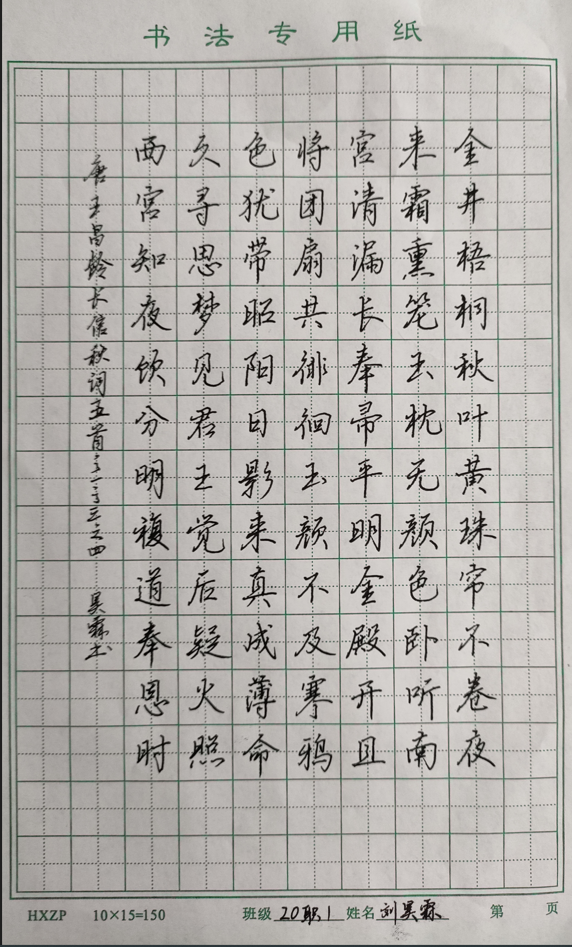 书法专用纸
金井梧桐秋叶黄珠帘不卷夜
来霜熏笼玉枕无颜色卧听南
宫清漏长奉帚平明金殿开且
将团扇共徘徊玉颜不及寒鸦
色犹带昭阳日影来真成薄命
久寻思梦见君王觉后疑火照
西宫知夜饮分明複道奉恩时
唐王昌龄长信秋词五首之一之三之四 昊霖书
HXZP 10×15=150 班级 20职1 姓名 刘昊霖 第 页